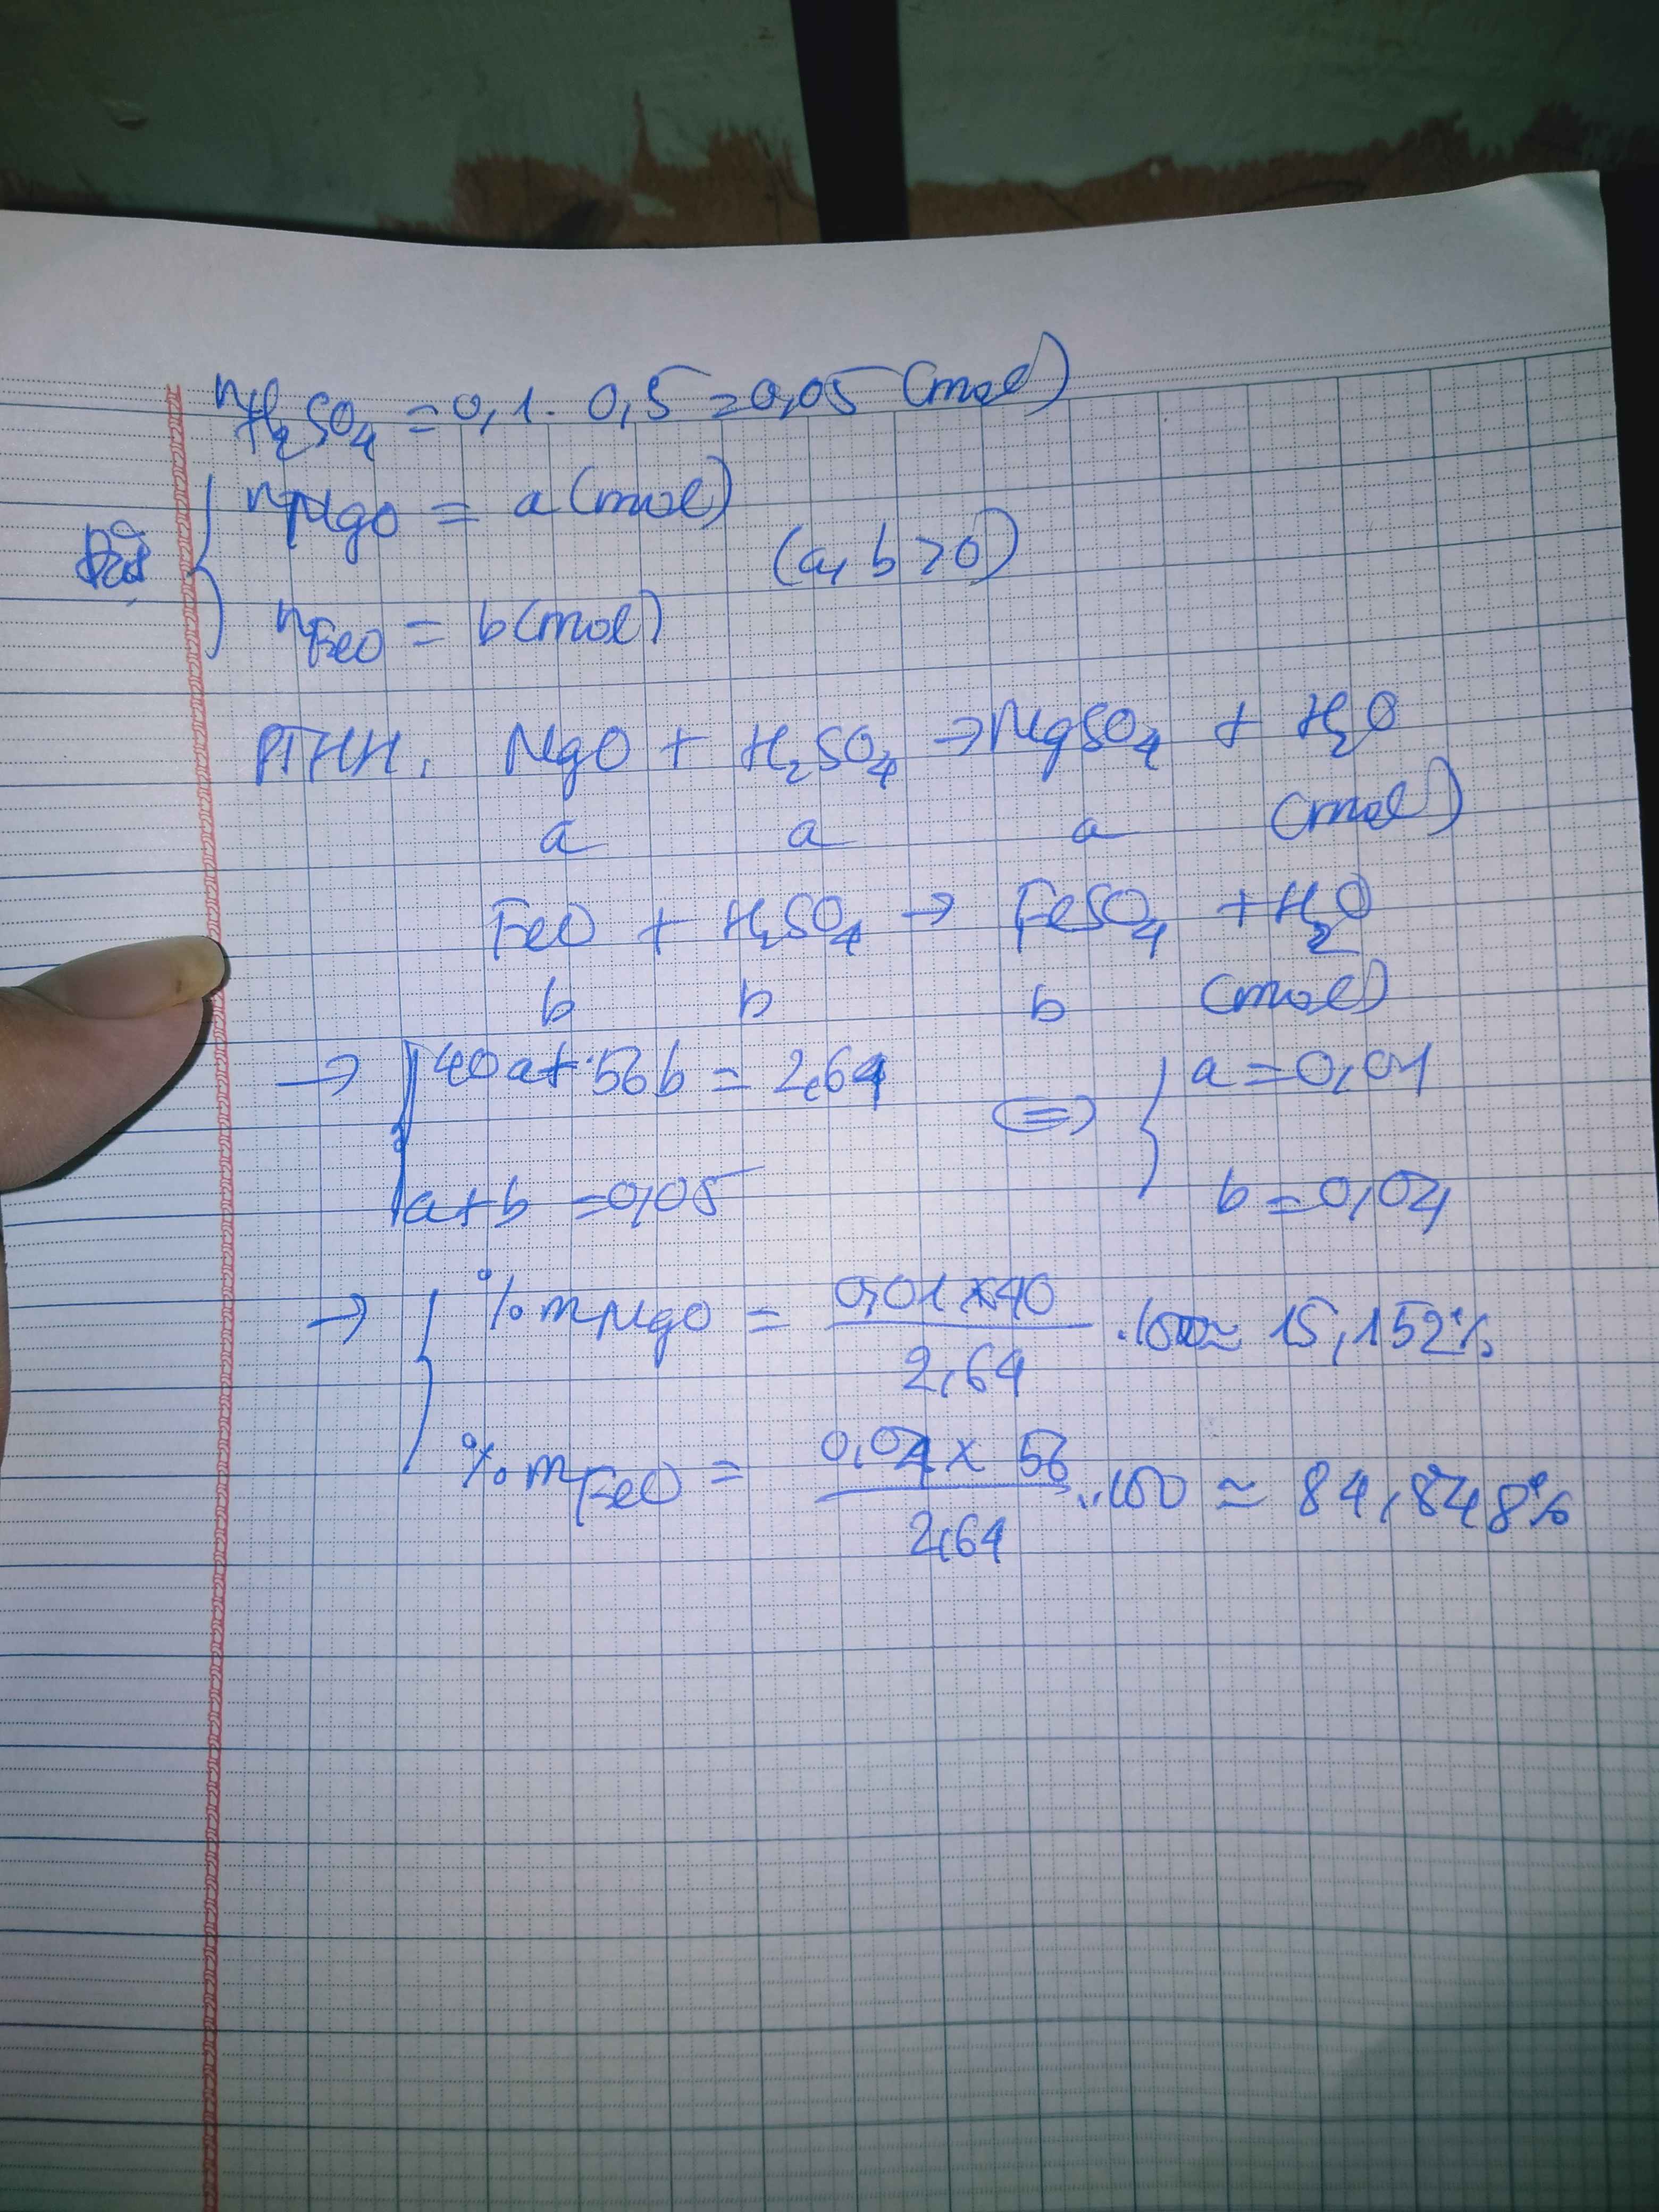 nH₂SO₄ = 0,1. 0,5 = 0,05 (mol)
nMgO = a (mol)
(a, b > 0)
nFeO = b (mol)
PTHH: MgO + H₂SO₄ → MgSO₄ + H₂O
a a a (mol)
FeO + H₂SO₄ → FeSO₄ + H₂O
b b b (mol)
→ { 40a + 56b = 2,64 ⇔ { a = 0,01
a + b = 0,05 b = 0,04
→ { %mMgO = 0,01 x 40 / 2,64 .100 ≈ 15,152%
%mFeO = 0,04 x 56 / 2,64 .100 ≈ 84,848%